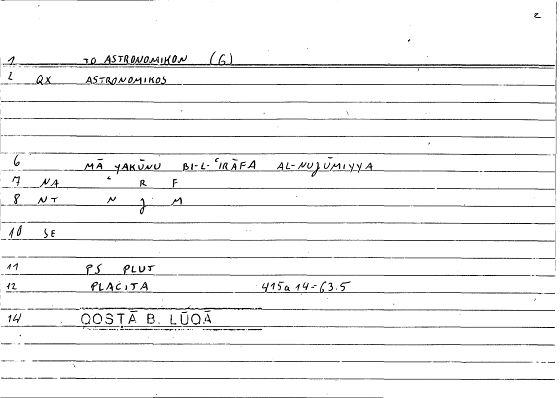 2
1 TO ASTRONOMIKON (G)
2 QX ASTRONOMIKOS
6 MĀ YAKŪNU BI-L-ʿIRĀFA AL-NUJŪMIYYA
7 NA ʿ R F
8 NT N J M
10 SE
11 PS PLUT
12 PLACITA 415a 14-63.5
14 QOSTĀ B. LŪQĀ